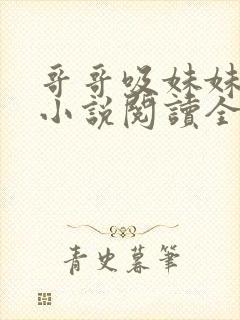 哥哥吸妹妹
小說閱讀全
青史暮筆